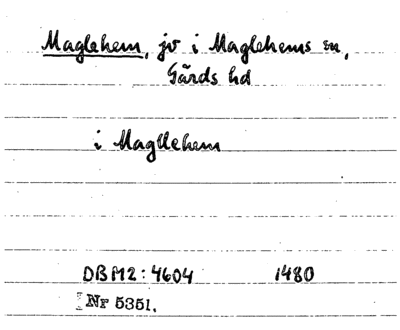 Maglehem, jv i Maglehems sn,
Gärds hd
i Magllehem
DBM2:4604 1480
Nr 5351.